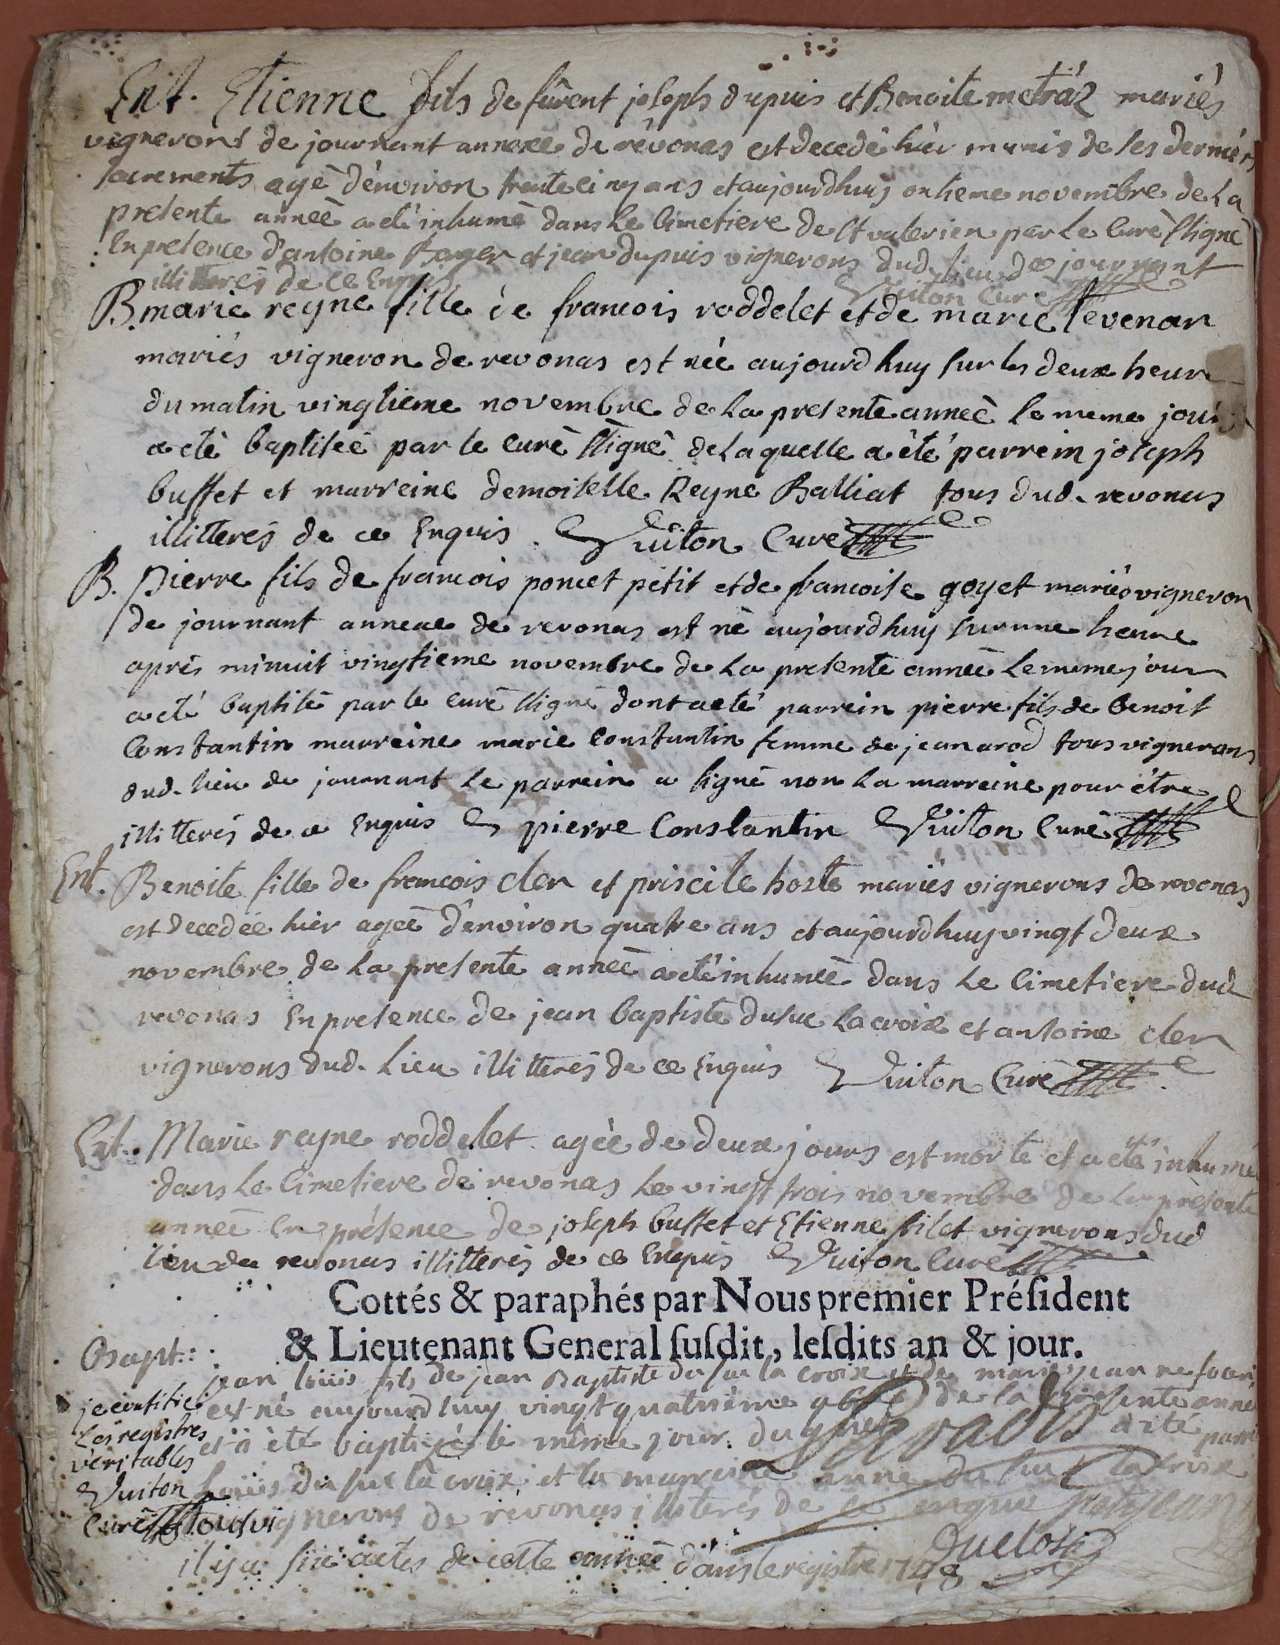 Ent. Etienne fils de furent joseph dupuis et Benoite metráz mariés
vignerons de journant annexe de révonas est decedé hiér munis de ses dernièrs
sacrements agè d'environ trente cinq ans et aujourdhuy onsieme novembre de La
presente anneè a eté inhumè dans Le Cimetiere de St valerien par Le Curè ssignè
En presence d'antoine Boyer et jean dupuis vignerons dud. lieu de journant
illitterés de ce Enquis Vuiton Curé
B. marie reyne fille de francois roddelet et de marie Tevenar
mariés vigneron de revonas est neè aujourdhuy sur les deux heure
du matin vingtieme novembre de La presente anneè le meme jour
a eté baptiseè par le curè ssignè de Laquelle a èté parrein joseph
buffet et marreine demoiselle Reyne Balliat tous dud. revonas
illitterés de ce Enquis. Vuiton Curé
B. Pierre fils de francois poncet petit et de francoise goyet mariés vigneron
de journant annexe de revonas est nè aujourdhuy sur une heure
aprés minuit vingtieme novembre de La presente anneè Le meme jour
a eté baptisè par le curè ssigné dont a eté parrein pierre fils de benoit
Constantin marreine marie Constantin femme de jean arod tous vignerons
dud. lieu de journant Le parrein a signè non La marreine pour être
illitterés de ce Enquis pierre Constantin Vuiton Curé
Ent. Benoite fille de francois cler et priscile hoste mariés vignerons de revonas
est decedée hier ageè d'environ quatre ans et aujourdhuy vingt deux
novembre de La presente anneè a eté inhumeè dans Le Cimetiere dud
revonas En presence de jean baptiste dusuc Lacroix et antoine cler
vignerons dud. Lieu illitterés de ce Enquis Vuiton Curé
Ent. Marie reyne roddelet ageè de deux jours est morte et a eté inhumé
dans Le Cimetiere de revonas Le vingt trois novembre de La présente
anneè En présence de joseph buffet et Etienne filet vignerons dud
lieu de revonas illitterés de ce Enquis Vuiton Curé
Cottés & paraphés par Nous premier Président
& Lieutenant General susdit, lesdits an & jour.
Bapt:
jean louis fils de jean Baptiste du suc la croix et de marie jeanne
est né aujourd'huy vingt quatrième 9bre de la presente anneè
et a èté baptizé le même jour. a èté parr
louis du suc la croix et la marreine anne du suc la croix
tous vignerons de revonas illiterés de ce enquis
je certifie
Les registres
véritables
Vuiton
Curé
Duclos
il y a six actes de cette anneè dans le registre 1748